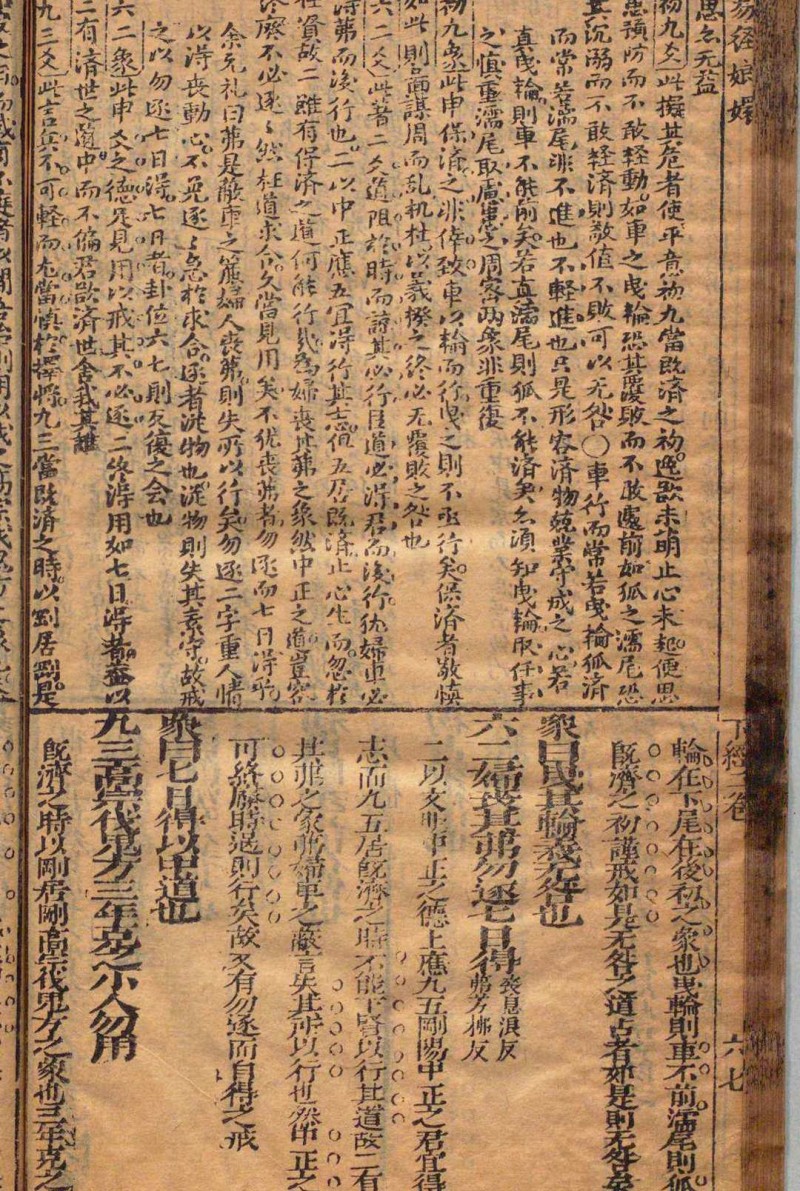 易经娘嬛
思乆无盆
初九爻此擬其危者使平意初九當既済之初逸欲未萌止心未起便思
患預防而不敢轻動如車之曳輪恐其覆敗而不敢處前如狐之濡尾恐
其沉溺而不敢轻済則敬值不敗可以无咎○車行而常若曳輪狐済
而常若濡尾非不進也不軽進也只是形容済物兢業守成之心若
真曳輪則車不能前矣若真濡尾則狐不能済矣須知曳輪取任事
之慎重濡尾取慮患之周密两象非重復
初九象此申保済之非倖致車以輪而行曳之則不亟行矣保済者敬慎
如此則啚謀周而乱机杜以義揆之终必无覆敗之咎也
六二爻此著二之道阻於時而諒其必行臣道必得君而後行犹婦車必
得茀而後行也二以中正應五宜得行其志值五居既済止心生而忽於
任賢故二雖有得済之道何能行哉為婦丧其茀之象然中正之道豈容
终廢不必逐逐然枉道求合久當見用矣不犹丧茀者勿逐而七日得乎
余允礼曰茀是蔽車之𥴩婦人丧茀則失所以行矣勿逐二字重人情
以得丧動心不免逐逐急於求合逐者從物也從物則失其素守故戒
之以勿逐七日得七日者卦位六七則反復之会也
六二象此申爻之德足見用以戒其不必逐二终得用如七日得者蓋以
二有済世之道中而不偏君欲済世舍我其誰
九三爻此言兵不可軽而尤當慎於擇將九三當既済之時以剛居剛是
下經二卷
六七
輪在下尾在後初之象也曳輪則車不前濡尾則狐
既濟之初謹戒如是无咎之道占者如是則无咎矣
象曰曳其輪義无咎也
六二婦喪其茀勿逐七日得 喪息浪反 茀芳拂反
二以文明中正之德上應九五剛陽中正之君宜得
志而九五居旣濟之時不能下賢以行其道故二有
其茀之象茀婦車之蔽言失其所以行也然中正之
可終廢時過則行矣故又有勿逐而自得之戒
象曰七日得以中道也
九三高宗伐鬼方三年克之小人勿用
旣濟之時以剛居剛高宗伐鬼方之象也三年克之